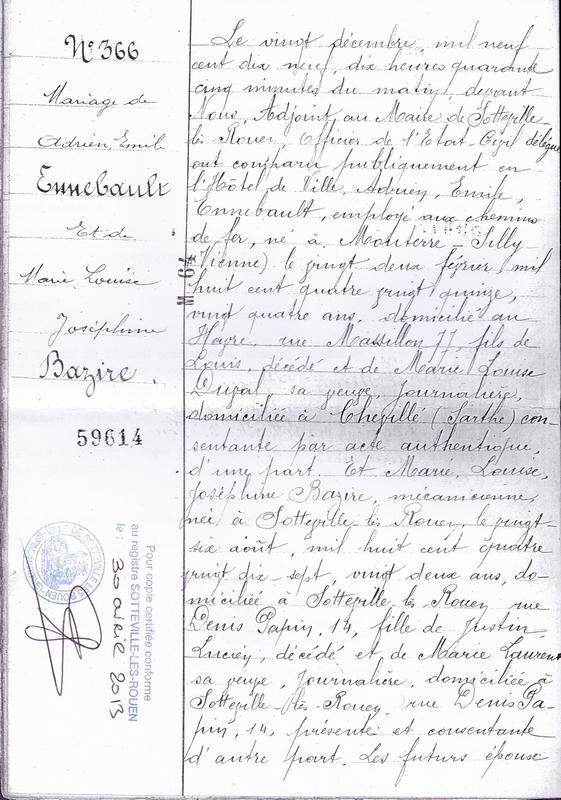 N° 366
Mariage de
Adrien, Emile
Ennebault
Et de
Marie Louise
Joséphine
Bazire.
59614
Pour copie certifiée conforme
au registre SOTTEVILLE-LES-ROUEN
le : 30 avril 2013
Le vingt décembre, mil neuf
cent dix neuf, dix heures quarante
cinq minutes du matin, devant
Nous, Adjoint au Maire de Sotteville-
lès Rouen, Officier de l'Etat-Civil délégué
ont comparu publiquement en
l'Hôtel de Ville, Adrien, Emile,
Ennebault, employé aux chemins
de fer, né à Mouterre-Silly
(Vienne) le vingt deux février mil
huit cent quatre vingt quinze,
vingt quatre ans, domicilié au
Havre, rue Massillon 77, fils de
Louis, décédé et de Marie Louise
Duval, sa veuve, journalière,
domiciliée à Chevillé (Sarthe) con-
sentante par acte authentique,
d'une part. Et Marie, Louise,
Joséphine Bazire, mécanicienne,
née à Sotteville-lès Rouen, le vingt-
six août, mil huit cent quatre
vingt dix-sept, vingt deux ans, do-
miciliée à Sotteville lès Rouen rue
Denis Papin, 14, fille de Justin,
Lucien, décédé et de Marie Laurent
sa veuve, journalière, domiciliée à
Sotteville-lès-Rouen, rue Denis Pa-
pin, 14, présente et consentante
d'autre part. Les futurs épouse